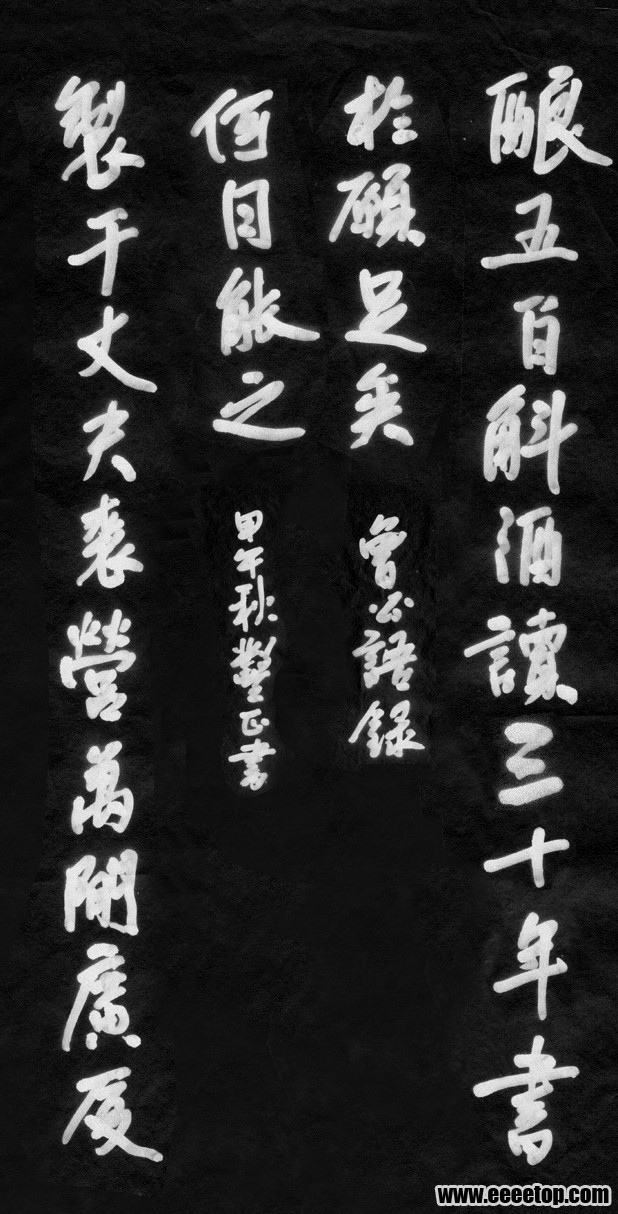 酿五百斛酒讀三十年書
於願足矣
曾公語録
製千丈大裘營萬間廣厦
何日能之
甲午秋正書
www.eeeetop.com